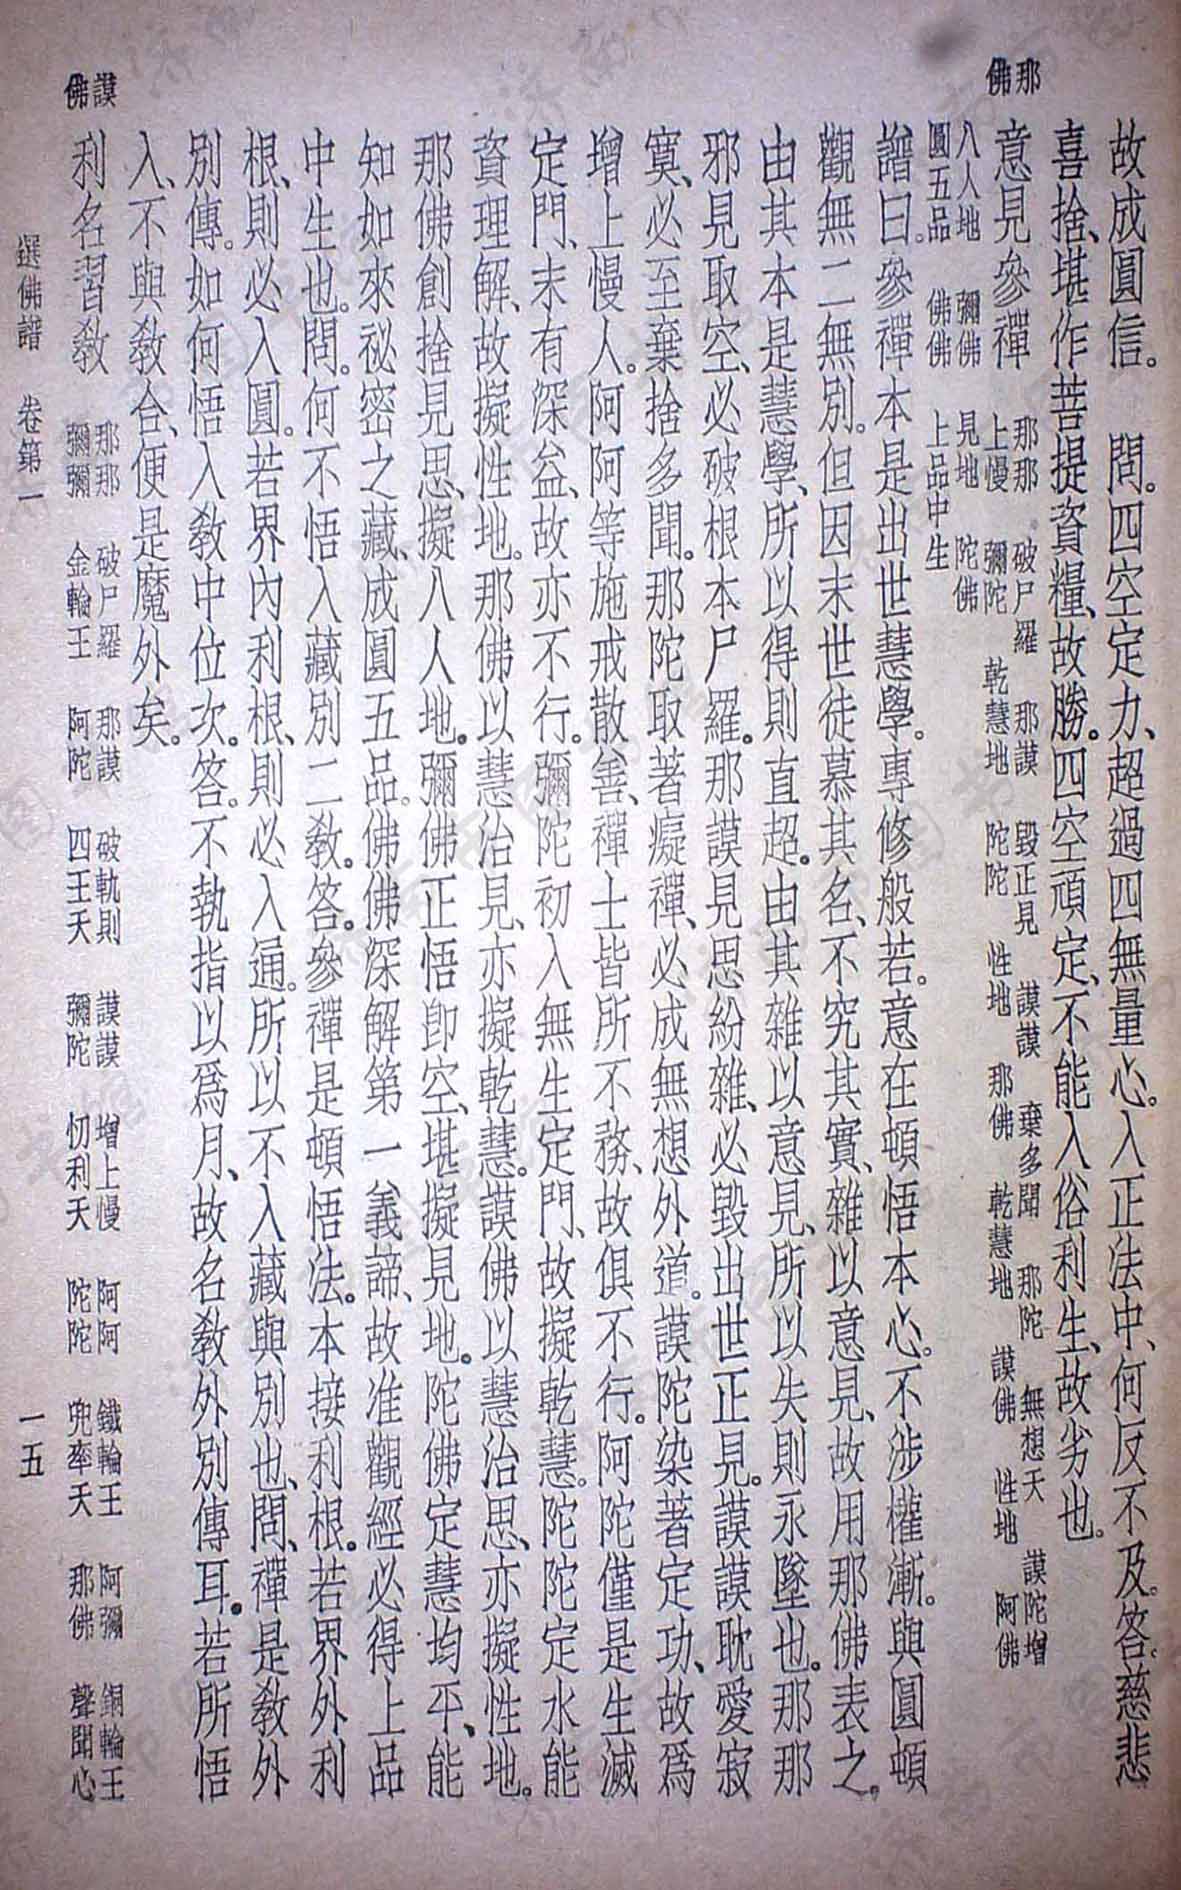 故成圓信。　問。四空定力、超過四無量心。入正法中、何反不及。答。慈悲
喜捨、堪作菩提資糧、故勝。四空頑定、不能入俗利生、故劣也。
那佛
意見參禪
那那　破尸羅　那謨　毀正見　謨謨　棄多聞　那陀　無想天　謨陀增
上慢　彌陀　乾慧地　陀陀　性地　那佛　乾慧地　謨佛　性地　阿佛
八人地　彌佛　見地　陀佛
圓五品　佛佛　上品中生
譜曰。參禪本是出世慧學。專修般若。意在頓悟本心。不涉權漸。與圓頓
觀無二無別。但因末世徒慕其名、不究其實、雜以意見、故用那佛表之。
由其本是慧學、所以得則直超。由其雜以意見、所以失則永墜也。那那
邪見取空、必破根本尸羅。那謨見思紛雜、必毀出世正見。謨謨耽愛寂
寞、必至棄捨多聞。那陀取著癡禪、必成無想外道。謨陀染著定功、故為
增上慢人。阿阿等施戒散善、禪士皆所不務、故俱不行。阿陀僅是生滅
定門、未有深益、故亦不行。彌陀初入無生定門、故擬乾慧。陀陀定水能
資理解、故擬性地。那佛以慧治見、亦擬乾慧。謨佛以慧治思、亦擬性地。
那佛創捨見思、擬八人地。彌佛正悟即空、堪擬見地。陀佛定慧均平、能
知如來祕密之藏、成圓五品。佛佛深解第一義諦、故准觀經必得上品
中生也。問。何不悟入藏別二教。答。參禪是頓悟法。本接利根。若界外利
根、則必入圓。若界內利根、則必入通。所以不入藏與別也、問、禪是教外
別傳。如何悟入教中位次。答。不執指以為月、故名教外別傳耳。若所悟
入、不與教合、便是魔外矣。
謨佛
利名習教
那那　破尸羅　那謨　破軌則　謨謨　增上慢　阿阿　鐵輪王　阿彌　銅輪王
彌彌　金輪王　阿陀　四王天　彌陀　忉利天　陀陀　兜率天　那佛　聲聞心
選佛譜　卷第一　一五